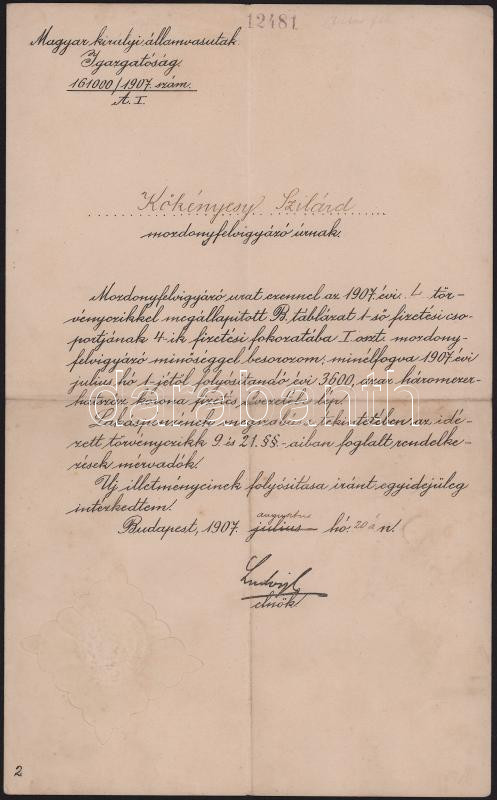 12481
Magyar királyi államvasutak
Igazgatóság.
161000/1907. szám.
A. I.
Kőkényesy Szilárd
mozdonyfelvigyázó úrnak.
Mozdonyfelvigyázó urat ezennel az 1907. évi L tör-
vényczikkel megállapitott B. táblázat 1-ső fizetési cso-
portjának 4-ik fizetési fokozatába I. oszt. mozdony-
felvigyázó minőséggel besorozom, minélfogva 1907. évi
július hó 1-jétől folyósitandó évi 3600, azaz háromezer-
hatszáz korona fizetés élvezetébe lép.
Lakáspénzének megszabása tekintetében az idé-
zett törvényczikk 9. és 21. §§-aiban foglalt rendelke-
zések mérvadók.
Uj illetményeinek folyósitása iránt egyidejüleg
intézkedtem.
augusztus
Budapest, 1907. július hó 20án.
Ludvigh
elnök.
2
darabanth